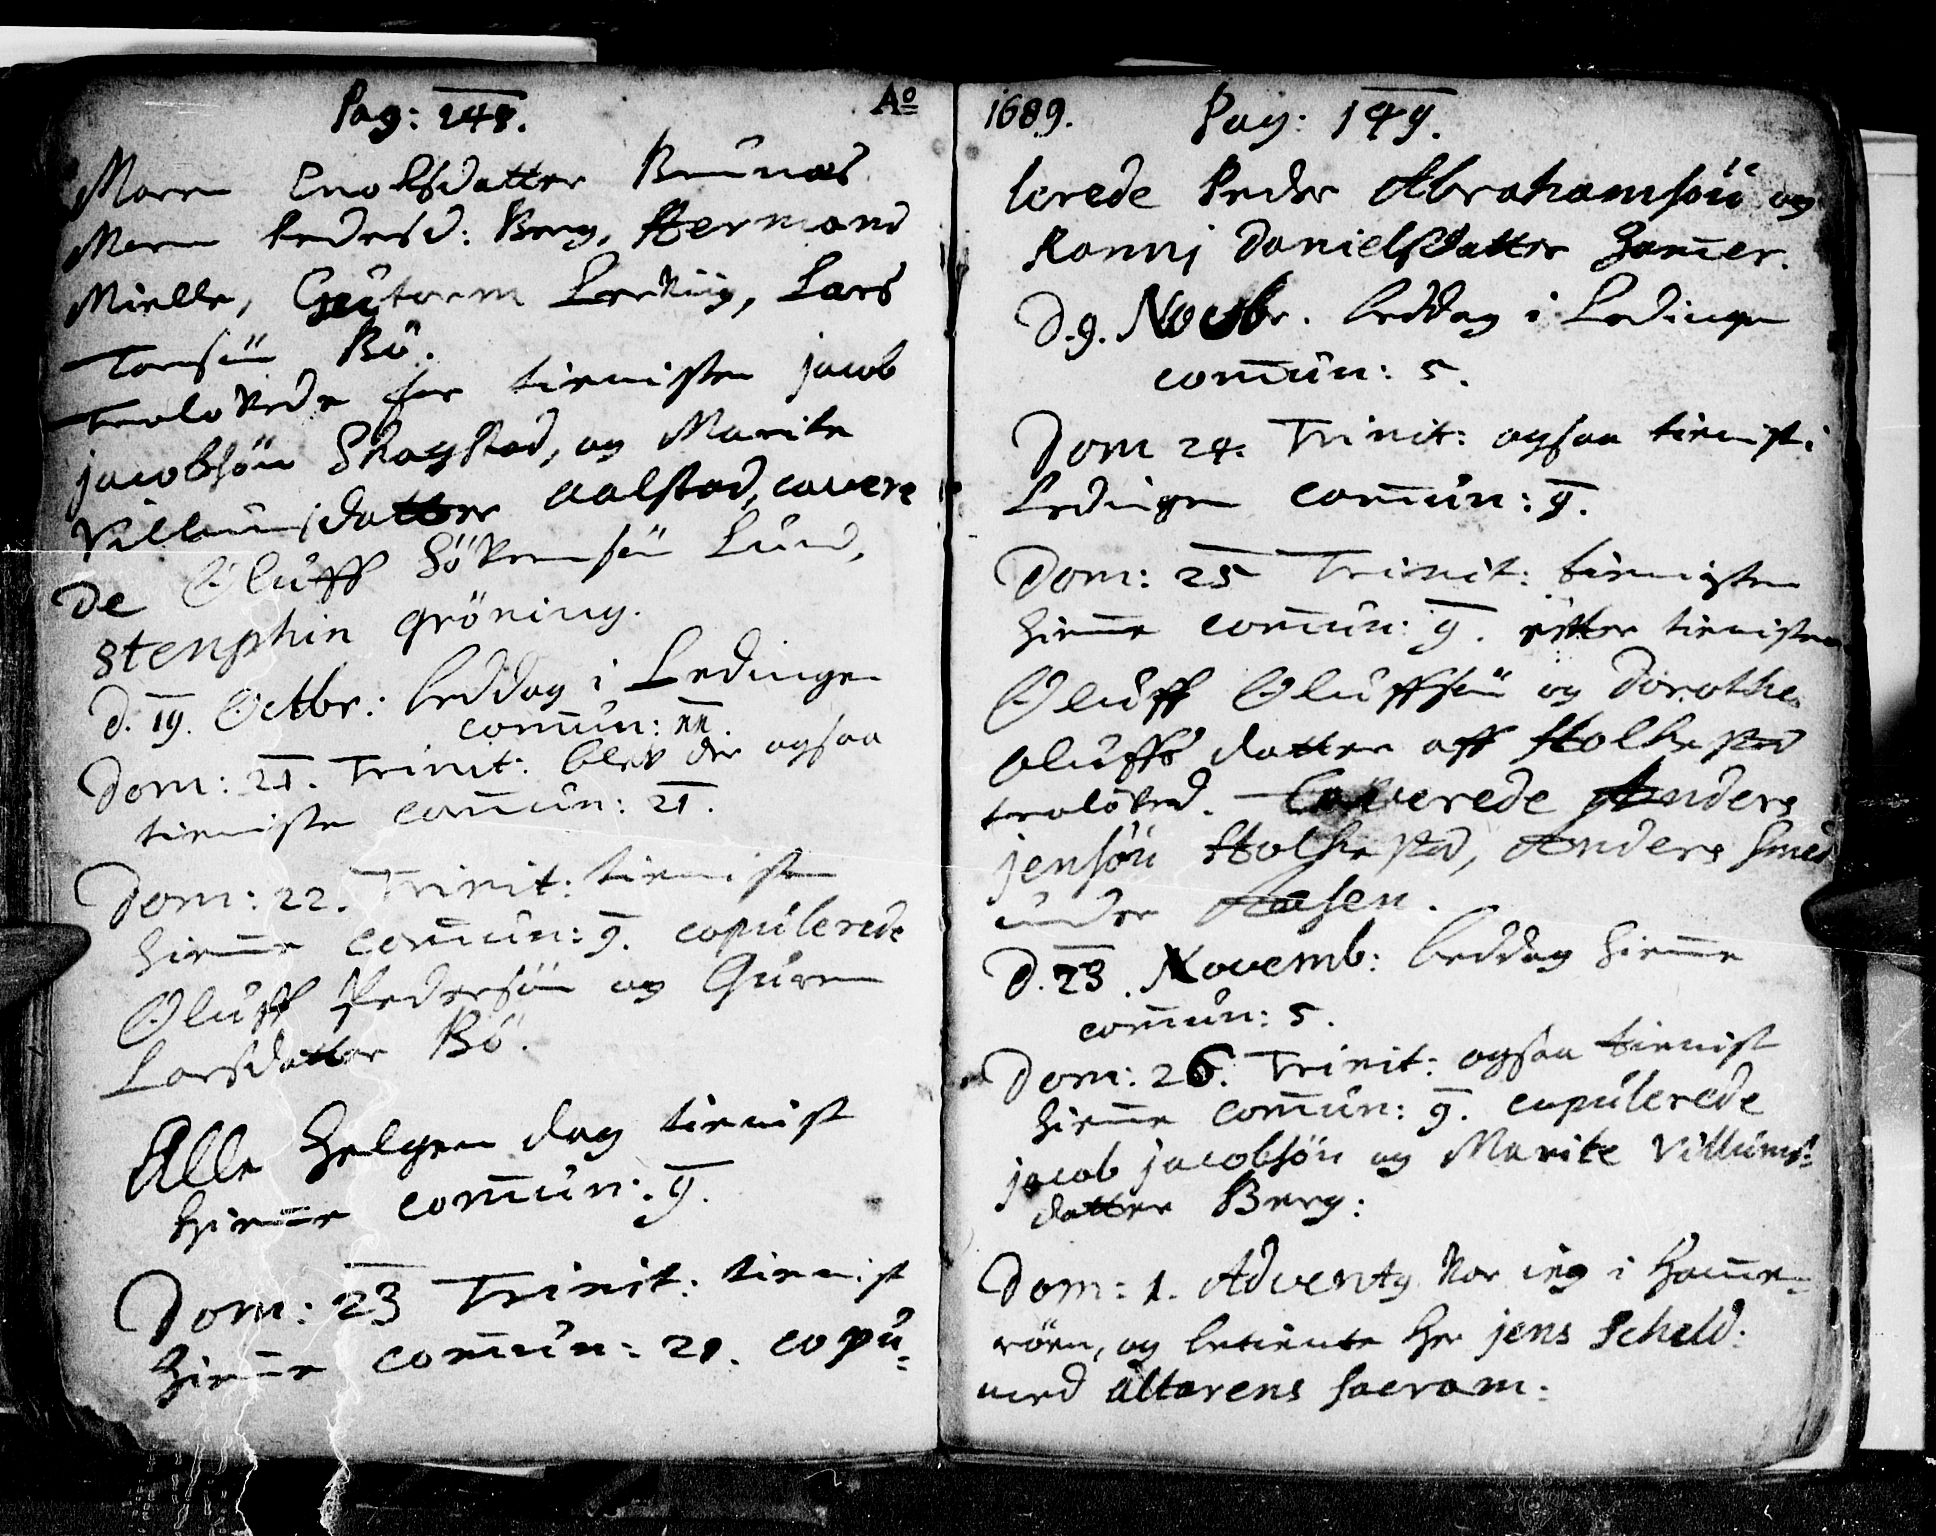 Pag: 248. Aº
Maren Enoksdatter Brunæs
Maren Pedersd: Berg, Hermand
Mielle, Guttorm Leeking, Lars
Torsön Bö.
Trolovede for tienisten jacob
jacobsön Skagstad, og Marite
Villumsdatter Aalstad, cavere
de Oluff Håkensön Lund,
Stenphin gröning.
d. 19. Octbr: beddag i Ledingen
comun: 11.
Dom: 21. Trinit: blef der ogsaa
tieniste comun: 21.
Dom: 22. Trinit: tienisten
hieme comun: 9. copulerede
Oluff Pedersön og Guren
Larsdatter Bö.
Alle Helgen dag tienist
hieme comun: 9.
Dom: 23 Trinit: tienist
hieme comun: 21. copu-
1689. Pag: 149.
lerede Peder Abrahamsön og
Kanni Danielsdatter Hamer.
D. 9. Novbr. beddag i Ledingen
comun: 5.
Dom 24. Trinit: ogsaa tienist i
Ledingen comun: 9.
Dom: 25 Trinit: tienisten
hieme comun: 9. efter tienisten
Oluff Oluffsön og Dorothe
Oluffs datter aff Holkestad
troloved. Caverede Anders
jensön Holkestad, Anders Smed
under Aasen.
D. 23. Novemb: beddag hieme
comun: 5.
Dom: 26. Trinit: ogsaa tienist
hieme comun: 9. copulerede
jacob jacobsön og Marite Villums-
datter Berg:
Dom: 1. Advents var ieg i Hame-
röen, og betiente Her jens Scheld:
med altarens sacram: